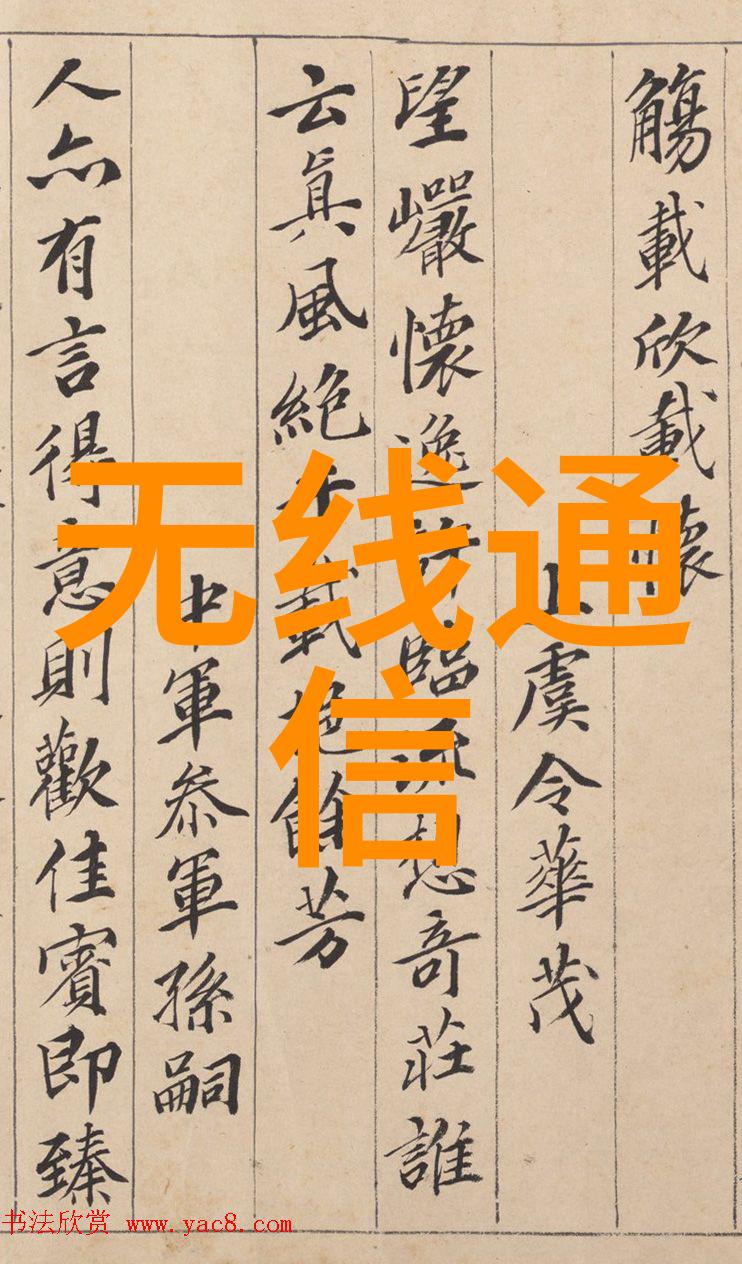 觴載欣載懷
上虞令華茂
望巗懷逸許臨流想奇莊誰
云眞風絶千載挹餘芳
中軍叅軍孫嗣
人亦有言得意則歡佳賓即臻
无线通
信
书法欣赏 www.yac8.com